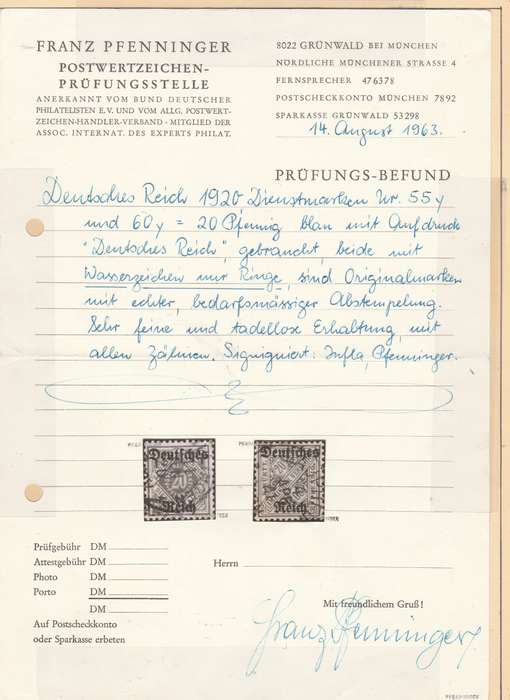 FRANZ PFENNINGER
POSTWERTZEICHEN-
PRÜFUNGSSTELLE
ANERKANNT VOM BUND DEUTSCHER
PHILATELISTEN E.V. UND VOM ALLG. POSTWERT-
ZEICHEN-HÄNDLER-VERBAND · MITGLIED DER
ASSOC. INTERNAT. DES EXPERTS PHILAT.
8022 GRÜNWALD BEI MÜNCHEN
NÖRDLICHE MÜNCHENER STRASSE 4
FERNSPRECHER 476378
POSTSCHECKKONTO MÜNCHEN 7892
SPARKASSE GRÜNWALD 53298
14. August 1963.
PRÜFUNGS-BEFUND
Deutsches Reich 1920 Dienstmarken Nr. 55y
und 60y = 20 Pfennig blau mit Aufdruck
"Deutsches Reich", gebraucht, beide mit
Wasserzeichen nur Ringe, sind Originalmarken
mit echter, bedarfsmässiger Abstempelung.
Sehr feine und tadellose Erhaltung, mit
allen Zähnen. Signigniert: Infla, Pfenninger.
Deutsches
20
Reich
Deutsches
Reich
Prüfgebühr DM
Attestgebühr DM
Photo DM
Porto DM
DM
Auf Postscheckkonto
oder Sparkasse erbeten
Herrn
Mit freundlichem Gruß!
Franz Pfenninger
PFENNINGER